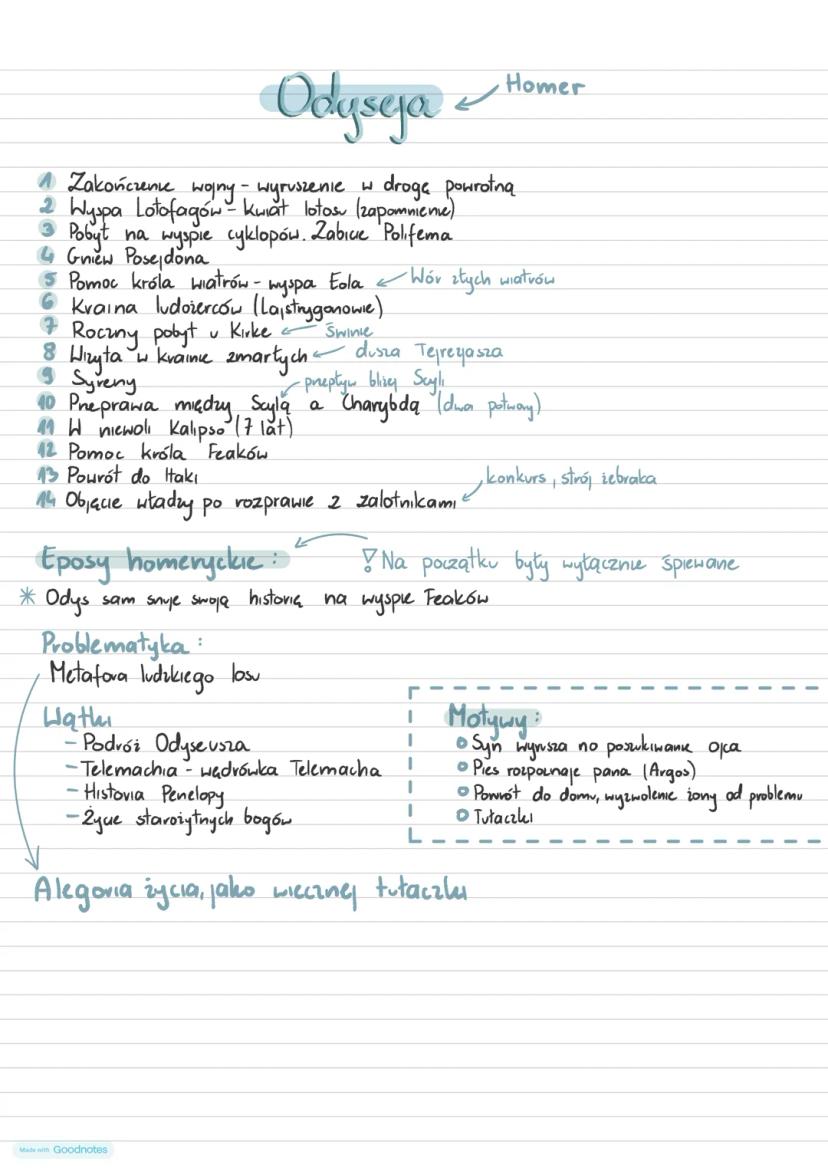 Odyseja
Homer
1 Zakończenie wojny - wyruszenie w drogę powrotną
2 Wyspa Lotofagów - kwiat lotosu (zapomnienie)
3 Pobyt na wyspie cyklopów. Zabicie Polifema
4 Gniew Posejdona
5 Pomoc króla wiatrów - wyspa Eola Wór złych wiatrów
6 Kraina ludożerców (Lajstrygonowie)
7 Roczny pobyt u Kirke świnie
8 Wizyta w krainie zmarłych dusza Tejrezjasza
9 Syreny
przepływ bliżej Scylli
10 Przeprawa między Scyllą a Charybdą (dwa potwory)
11 W niewoli Kalipso (7 lat)
12 Pomoc króla Feaków
13 Powrót do Itaki
konkurs, strój żebraka
14 Objęcie władzy po rozprawie z zalotnikami
Eposy homeryckie: ! Na początku były wyłącznie śpiewane
* Odys sam snuje swoją historię na wyspie Feaków
Problematyka:
Metafora ludzkiego losu
Wątki
- Podróż Odyseusza
- Telemachia - wędrówka Telemacha
- Historia Penelopy
- Życie starożytnych bogów
Motywy:
Syn wyrusza na poszukiwanie ojca
Pies rozpoznaje pana (Argos)
Powrót do domu, wyzwolenie żony od problemu
Tułaczki
Alegoria życia, jako wiecznej tułaczki
Made with Goodnotes